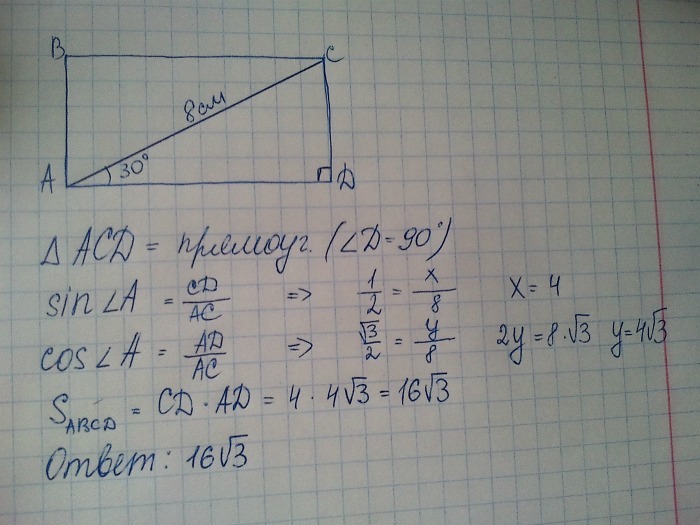 B C
8см
A 30° D
Δ ACD = прямоуг. (∠D=90°)
sin∠A = CD/AC => 1/2 = x/8 x = 4
cos∠A = AD/AC => √3/2 = y/8 2y=8·√3 y=4√3
S_ABCD = CD · AD = 4 · 4√3 = 16√3
Ответ: 16√3